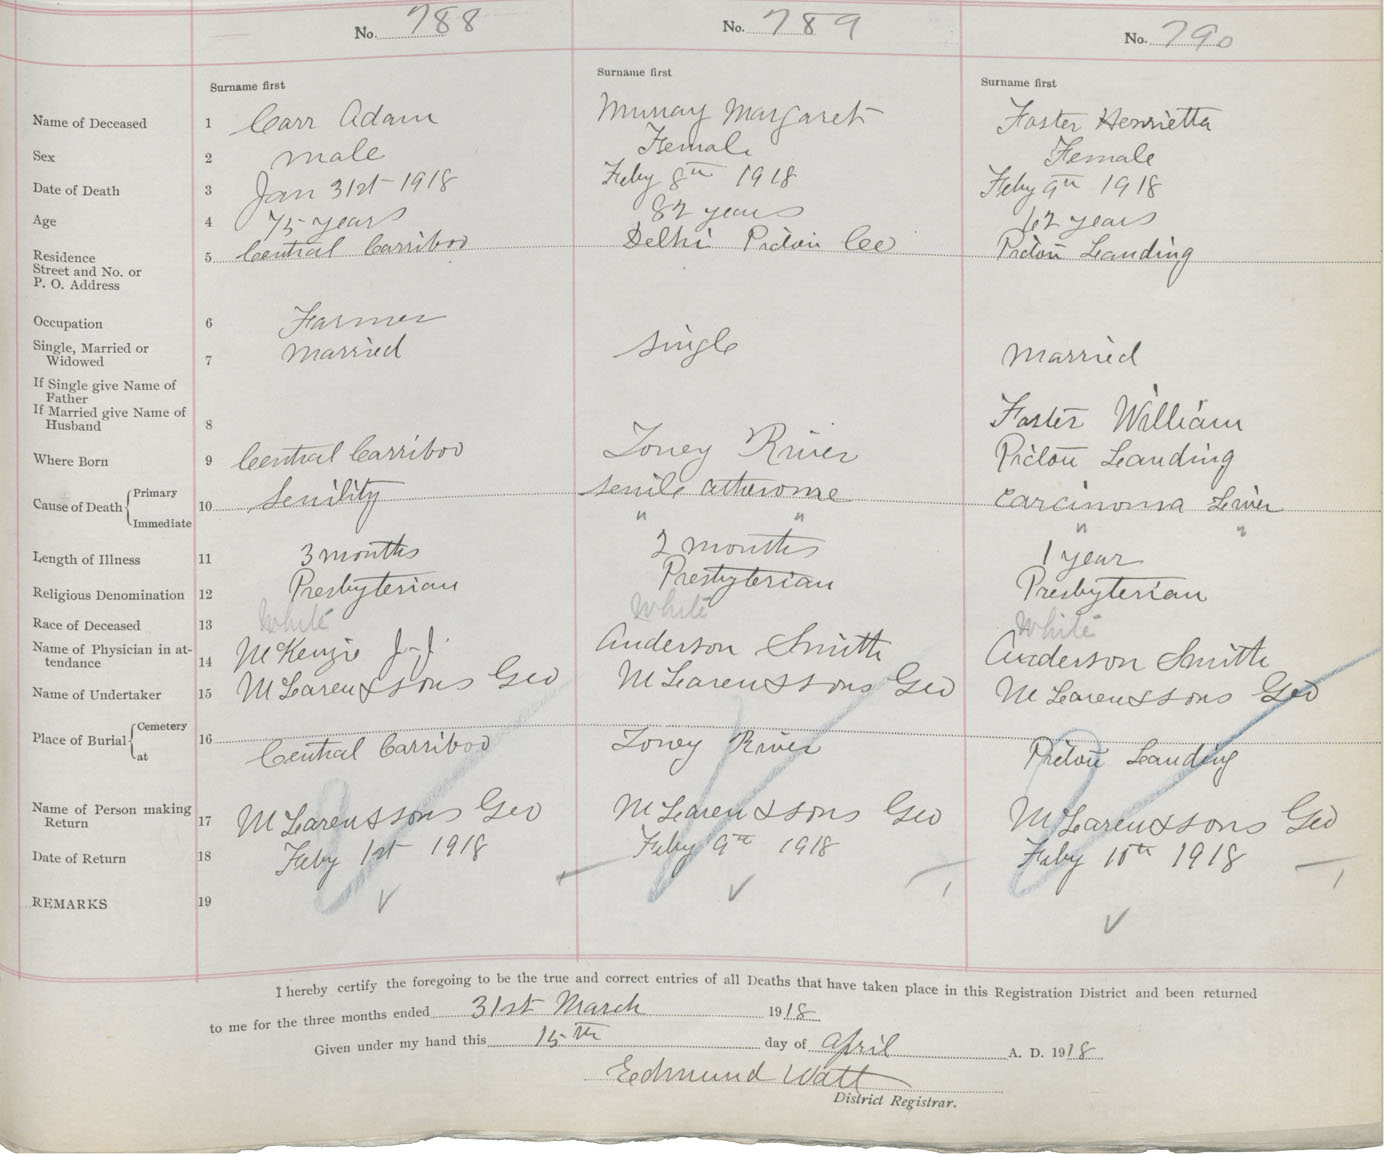 No. 788 No. 789 No. 790
Surname first Surname first Surname first
Name of Deceased 1 Carr Adam Murray Margaret Foster Henrietta
Sex 2 Male Female Female
Date of Death 3 Jan 31st 1918 Feby 8th 1918 Feby 9th 1918
Age 4 75 years 82 years 62 years
Residence
Street and No. or
P. O. Address 5 Central Carriboo Delhi Pictou Co Pictou Landing
Occupation 6 Farmer
Single, Married or
Widowed 7 Married Single Married
If Single give Name of
Father
If Married give Name of
Husband 8 Foster William
Where Born 9 Central Carriboo Toney River Pictou Landing
Cause of Death { Primary
Immediate 10 Senility Senile Atherome Carcinoma Liver
" " " "
Length of Illness 11 3 months 2 months 1 year
Religious Denomination 12 Presbyterian Presbyterian Presbyterian
Race of Deceased 13 White White White
Name of Physician in at-
tendance 14 McKenzie J. J. Anderson Smith Anderson Smith
Name of Undertaker 15 McLaren & Sons Geo McLaren & Sons Geo McLaren & Sons Geo
Place of Burial { Cemetery
at 16 Central Carriboo Toney River Pictou Landing
Name of Person making
Return 17 McLaren & Sons Geo McLaren & Sons Geo McLaren & Sons Geo
Date of Return 18 Feby 1st 1918 Feby 9th 1918 Feby 10th 1918
REMARKS 19
I hereby certify the foregoing to be the true and correct entries of all Deaths that have taken place in this Registration District and been returned
to me for the three months ended 31st March 1918
Given under my hand this 15th day of April A. D. 1918
Edmund Watt
District Registrar.